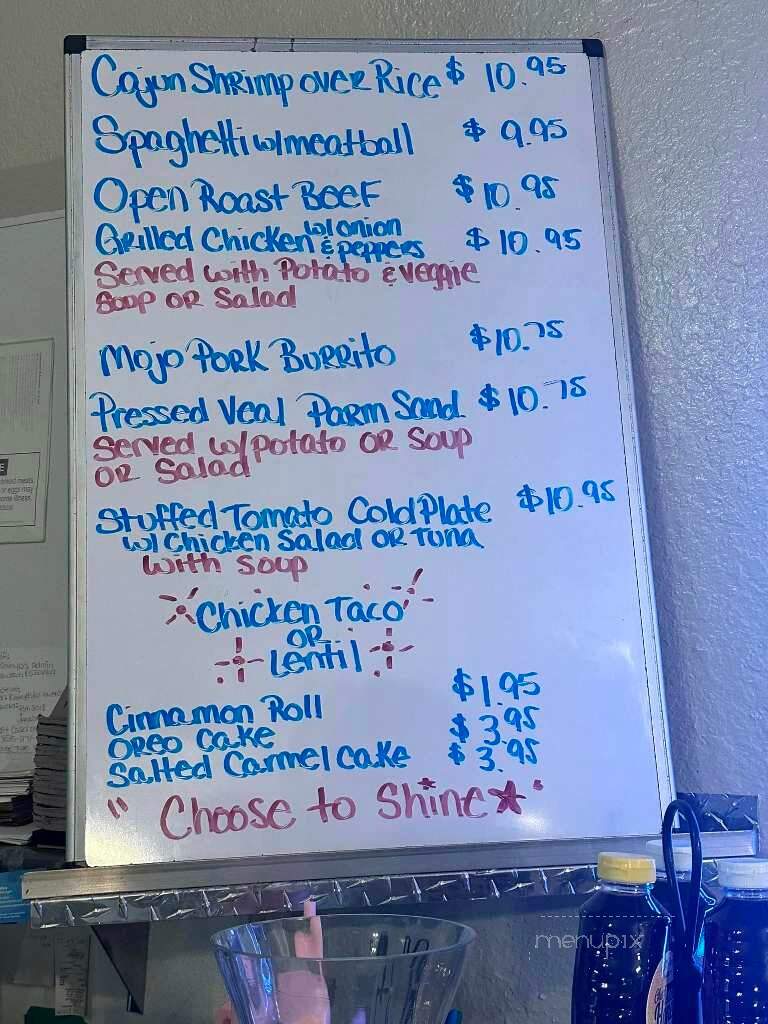 Cajun Shrimp over Rice $ 10.95
Spaghetti w/meatball $ 9.95
Open Roast Beef $10.95
Grilled Chicken w/onion & peppers $10.95
Served with Potato & Veggie
Soup or Salad
Mojo Pork Burrito $10.75
Pressed Veal Parm Sand $10.75
Served w/Potato or Soup
or Salad
Stuffed Tomato Cold Plate $10.95
w/ Chicken Salad or Tuna
with Soup
Chicken Taco
or
Lentil
Cinnamon Roll $1.95
Oreo Cake $3.95
Salted Carmel Cake $3.95
"Choose to Shine"
menupix